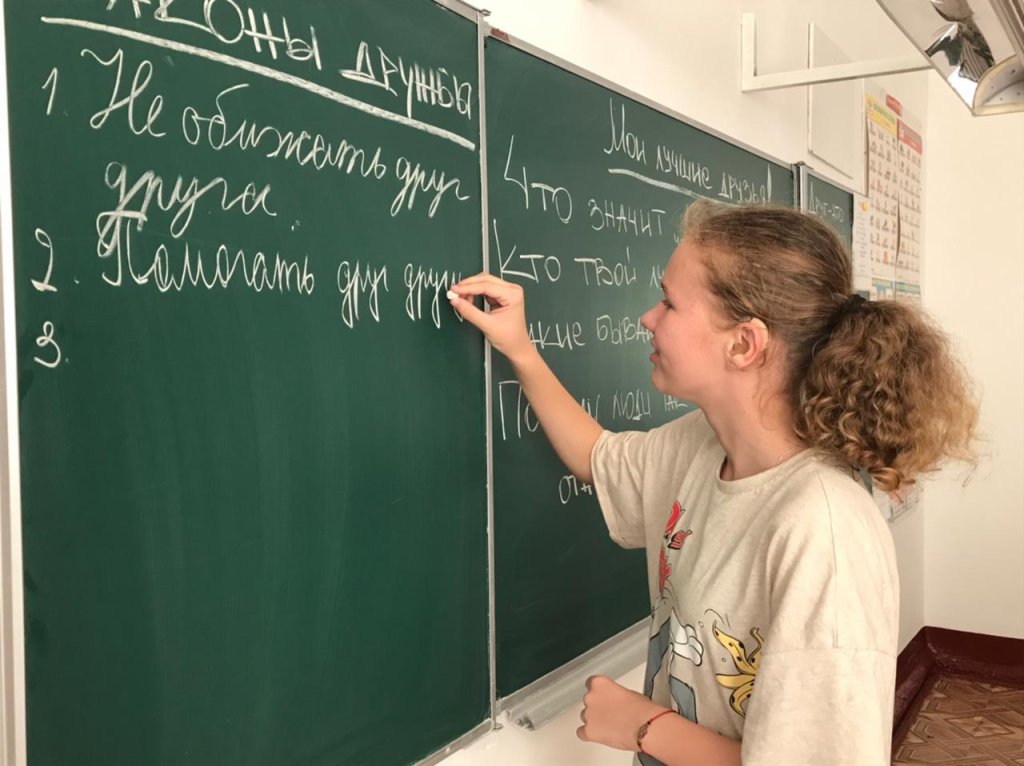 ЗАКОНЫ ДРУЖБЫ
1 Не обижать друг
друга.
2. Помогать друг другу
3.
Мои лучшие друзья!
Что значит
Кто твой
Какие быва
Почему люди